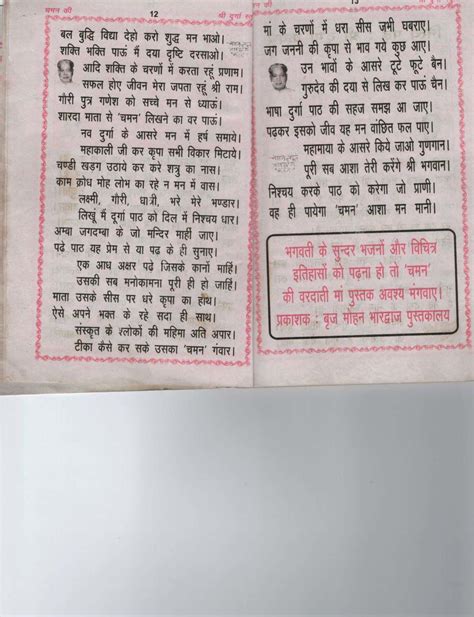 चमन की
12
श्री दुर्गा
बल बुद्धि विद्या देहो करो शुद्ध मन भाओ।
शक्ति भक्ति पाऊं मैं दया दृष्टि दरसाओ।
आदि शक्ति के चरणों में करता रहूं प्रणाम।
सफल होए जीवन मेरा जपता रहूं श्री राम।
गौरी पुत्र गणेश को सच्चे मन से ध्याऊं।
शारदा माता से 'चमन' लिखने का वर पाऊं।
नव दुर्गा के आसरे मन में हर्ष समाये।
महाकाली जी कर कृपा सभी विकार मिटाये।
चण्डी खडग उठाये कर करे शत्रु का नास।
काम क्रोध मोह लोभ का रहे न मन में वास।
लक्ष्मी, गौरी, धात्री, भरे मेरे भण्डार।
लिखूं मैं दुर्गा पाठ को दिल में निश्चय धार।
अम्बा जगदम्बा के जो मन्दिर माहीं जाए।
पढ़े पाठ यह प्रेम से या पढ़ के ही सुनाए।
एक आध अक्षर पढ़े जिसके कानों माहिं।
उसकी सब मनोकामना पूरी ही हो जाहीं।
माता उसके सीस पर धरे कृपा का हाथ।
ऐसे अपने भक्त के रहे सदा ही साथ।
संस्कृत के श्लोकों की महिमा अति अपार।
टीका कैसे कर सके उसका 'चमन' गंवार।
13
मां के चरणों में धरा सीस जभी घबराए।
जग जननी की कृपा से भाव गये कुछ आए।
उन भावों के आसरे टूटे फूटे बैन।
गुरुदेव की दया से लिख कर पाऊं चैन।
भाषा दुर्गा पाठ की सहज समझ आ जाए।
पढ़कर इसको जीव यह मन वांछित फल पाए।
महामाया के आसरे किये जाओ गुणगान।
पूरी सब आशा तेरी करेंगे श्री भगवान।
निश्चय करके पाठ को करेगा जो प्राणी।
वह ही पायेगा 'चमन' आशा मन मानी।
भगवती के सुन्दर भजनों और विचित्र
इतिहासों को पढ़ना हो तो 'चमन'
की वरदाती मां पुस्तक अवश्य मंगवाएं।
प्रकाशक : बृज मोहन भारद्वाज पुस्तकालय